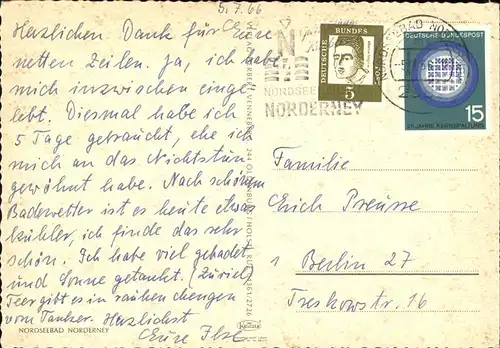 5.7.66
Herzlichen Dank für Eure
netten Zeilen. Ja, ich habe
mich inzwischen einge
lebt. Diesmal habe ich
5 Tage gebraucht, ehe ich
mich an das Nichtstun
gewöhnt habe. Nach schönem
Badewetter ist es heute etwas
kühler, ich finde das sehr
schön. Ich habe viel gebadet
und Sonne getankt. (Zurück)
Teer gibt es in rauhen
vom Tanker. Herzlichst
Eure Ilse
NORDSEEBAD NORDERNEY
NORDSEE
NORDERNEY
DEUTSCHE BUNDESPOST
5
DEUTSCHE BUNDESPOST
15
JAHRE KERNSPALTUNG
Familie
Erich Preusse
1 Berlin 27
Treskowstr. 16